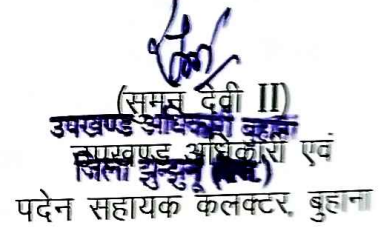 (सुमन देवी II)
उपखण्ड अधिकारी बुहाना
उपखण्ड अधिकारी एवं
जिला झुन्झुनू
पदेन सहायक कलक्टर, बुहाना